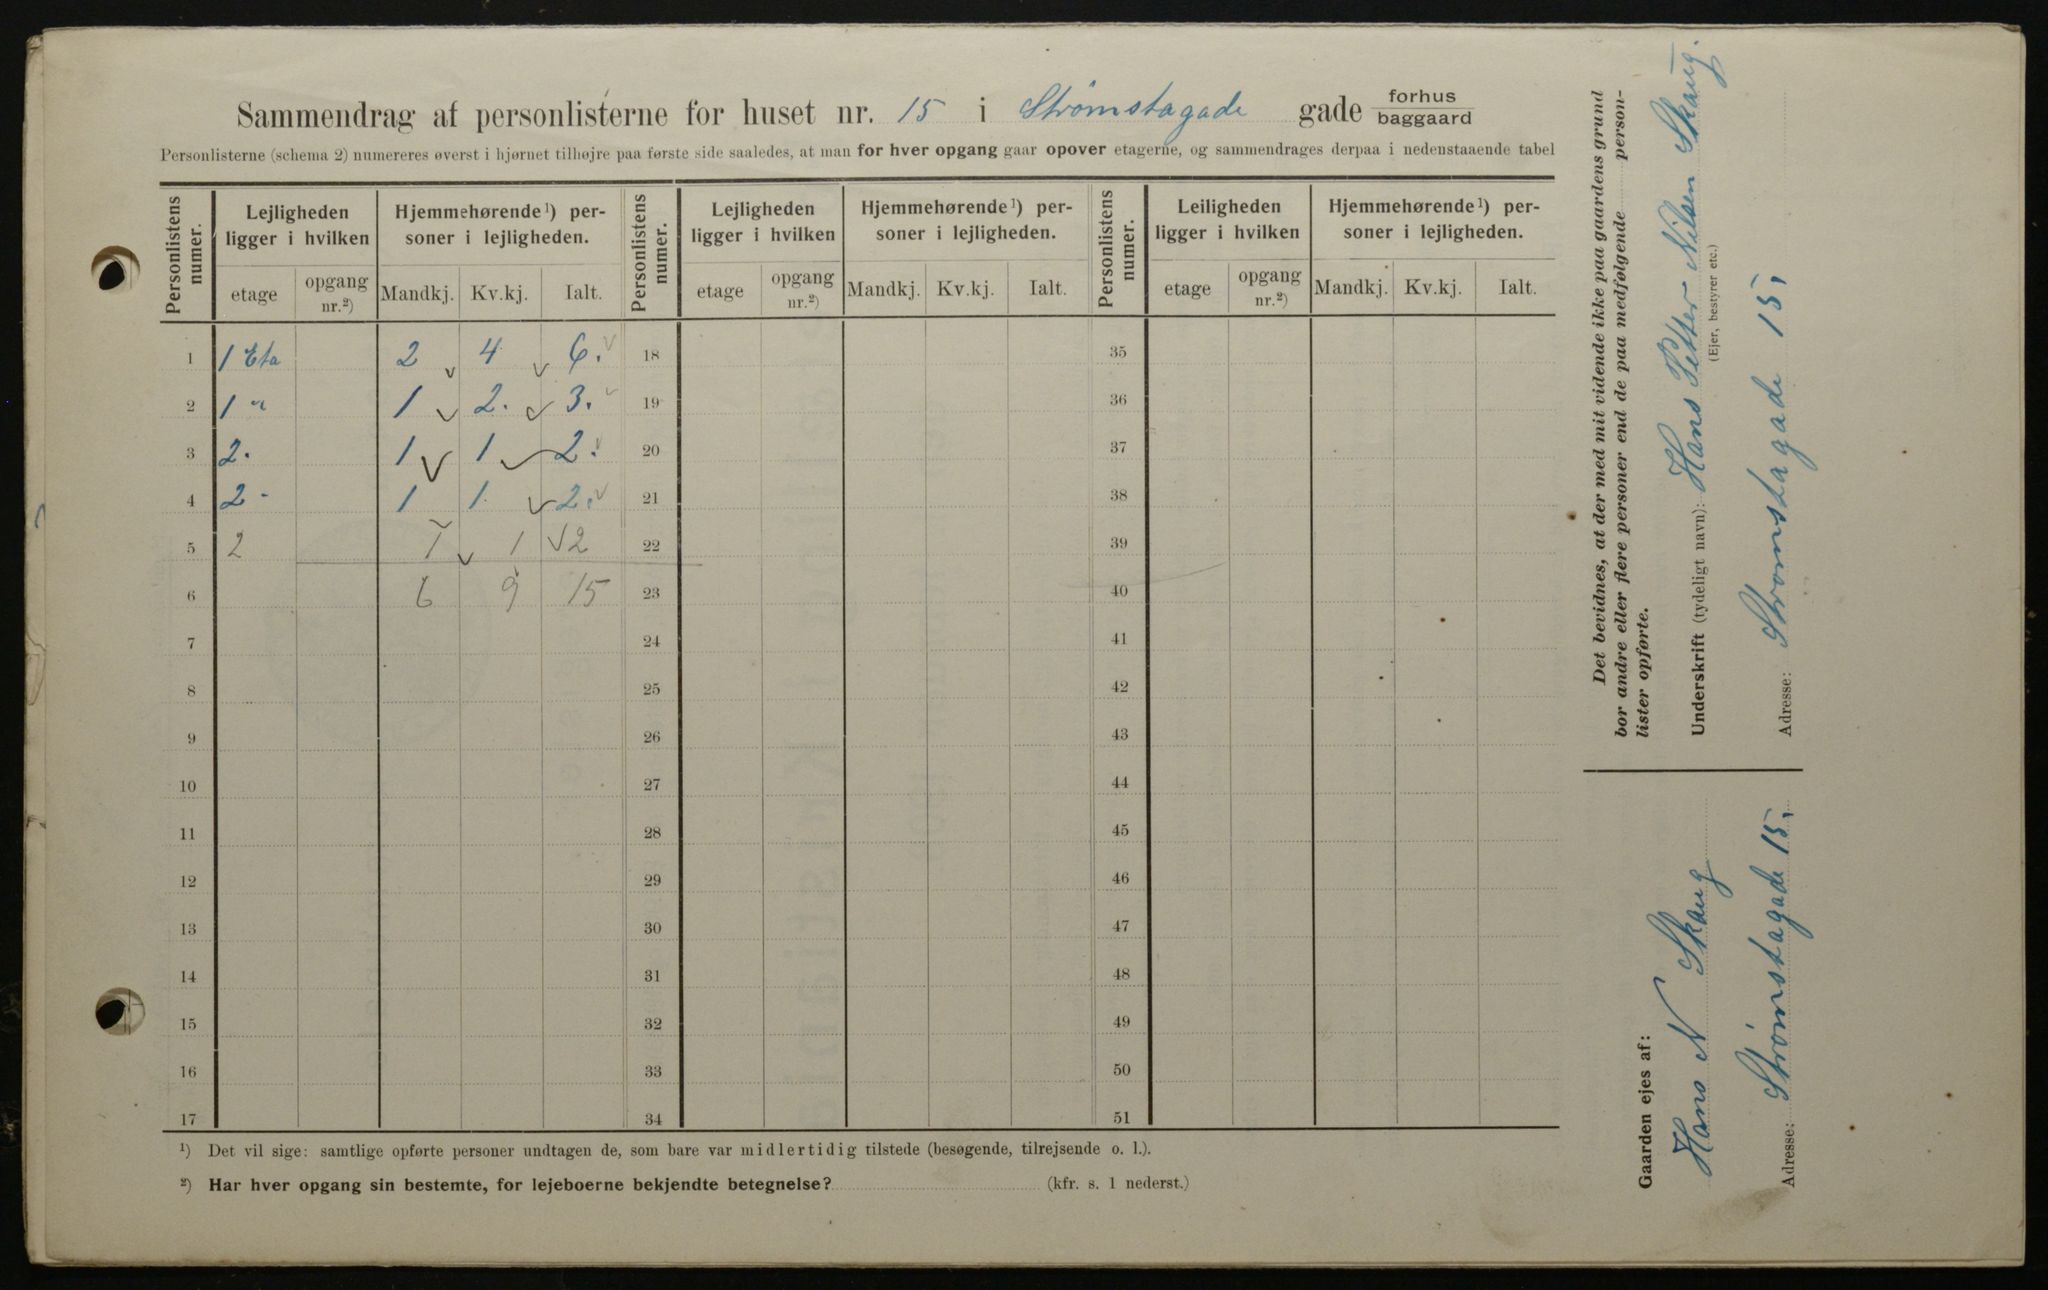 Sammendrag af personlisterne for huset nr. 15 i Strømstagade gade forhus baggaard
Personlisterne (schema 2) numereres øverst i hjørnet tilhøjre paa første side saaledes, at man for hver opgang gaar opover etagerne, og sammendrages derpaa i nedenstaaende tabel
Personlistens numer. Lejligheden ligger i hvilken Hjemmehørende¹) personer i lejligheden. Personlistens numer. Lejligheden ligger i hvilken Hjemmehørende¹) personer i lejligheden. Personlistens numer. Leiligheden ligger i hvilken Hjemmehørende¹) personer i lejligheden.
etage opgang nr.²) Mandkj. Kv.kj. Ialt. etage opgang nr.²) Mandkj. Kv.kj. Ialt. etage opgang nr.²) Mandkj. Kv.kj. Ialt.
1 1 Eta 2 4 6. 18 35
2 1 " 1 2. 3. 19 36
3 2. 1 1 2. 20 37
4 2 - 1 1. 2. 21 38
5 2 1 1 2 22 39
6 6 9 15 23 40
7 24 41
8 25 42
9 26 43
10 27 44
11 28 45
12 29 46
13 30 47
14 31 48
15 32 49
16 33 50
17 34 51
¹) Det vil sige: samtlige opførte personer undtagen de, som bare var midlertidig tilstede (besøgende, tilrejsende o. l.).
²) Har hver opgang sin bestemte, for lejeboerne bekjendte betegnelse? (kfr. s. 1 nederst.)
Det bevidnes, at der med mit vidende ikke paa gaardens grund
bor andre eller flere personer end de paa medfølgende person-
lister opførte.
Underskrift (tydeligt navn): Hans Petter Nilsen Skaug.
(Ejer, bestyrer etc.)
Adresse: Strømstagade 15,
Gaarden ejes af:
Hans N Skaug
Adresse: Strømstagade 15,